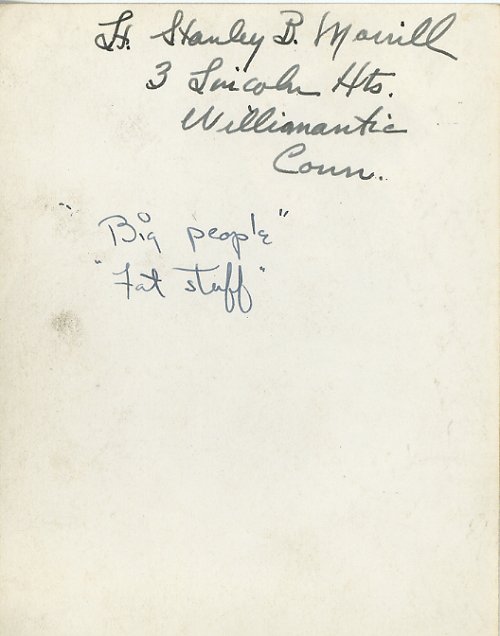 Lt. Stanley B. Morrill
3 Lincoln Hts.
Willimantic
Conn.
"Big people"
"Fat stuff"